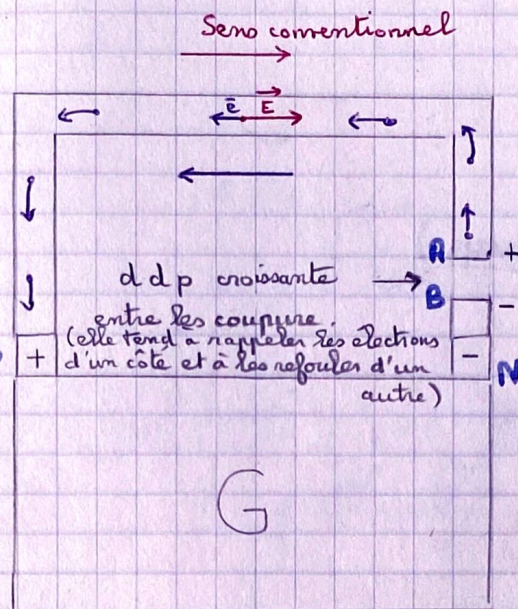 Sens conventionnel
ē E
A +
d d p croissante
B -
entre les coupure.
(elle tend a rappeler les électrons
+ d'un côté et à les refouler d'un - N
autre)
G